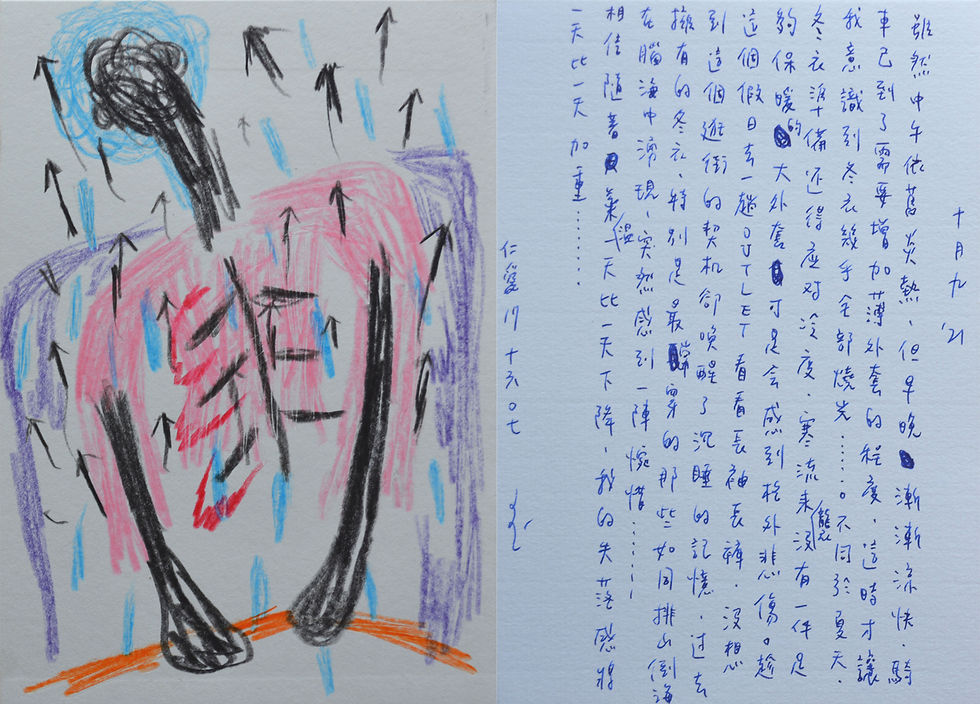 十月九 '21
雖然中午依舊炎熱,但早晚漸漸涼快,騎
車已到了需要增加薄外套的程度,這時才讓
我意識到冬衣幾乎全部燒光……。不同於夏天,
冬衣準備还得应对冷度,寒流来襲沒有一件足
夠保暖的大外套可是会感到格外悲傷。趁
這個假日去一趟OUTLET看看長袖長褲,沒想
到這個逛街的契机卻喚醒了沉睡的記憶,过去
擁有的冬衣,特別是最常穿的那些如同排山倒海
在腦海中湧現,突然感到一陣惋惜……
相信隨著氣溫一天比一天下降,我的失落感將
一天比一天加重……
仁愛17 十六〇七